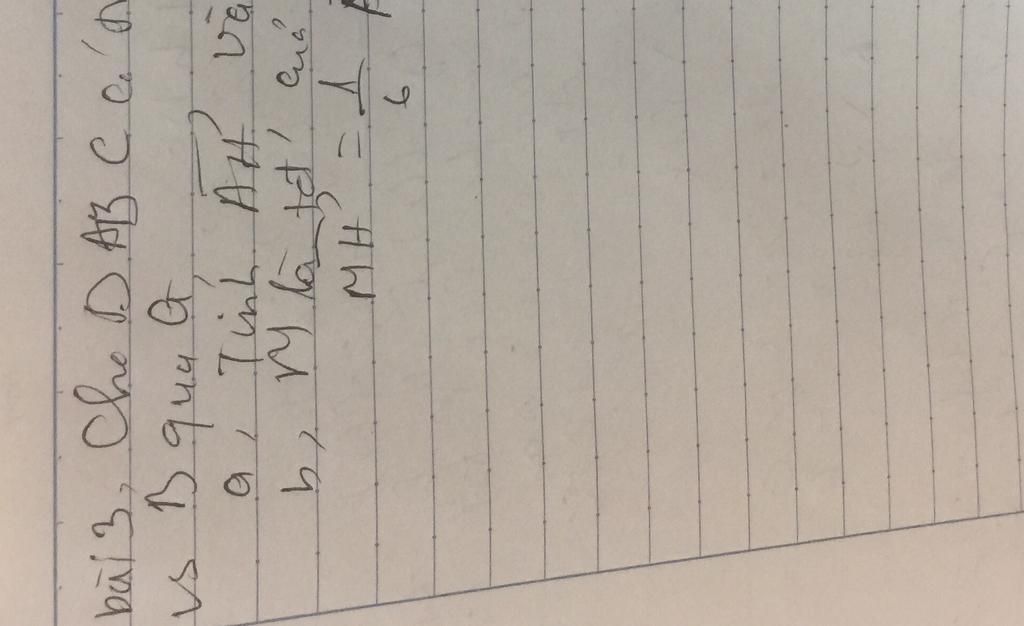 bài 3, Cho Δ ABC có
vs B qua G
a, Tính AH và
b, M là tđ' của
MH = 1/6